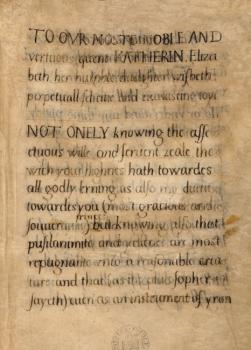 TO OVR MOST NOBLE AND
vertuous quene KATHERIN, Eliza
beth her humble daughter wisheth
perpetuall felicitie and everlasting joye
NOT ONELY knowing the affe
ctuous wille and fervent zeale the
wich your highnes hath towardes
all godly lerning as also my duetie
towardes you (most gracious and
souueraine princes) but knowing also that
pusilanimite and ydlenes are most
repugnante vnto a reasonable crea
ture and that (as the philosopher
sayeth) euen as an instrument of yron